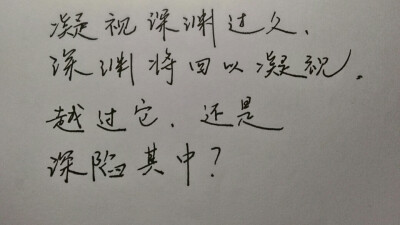 凝视深渊过久.
深渊将回以凝视.
越过它.还是
深陷其中?